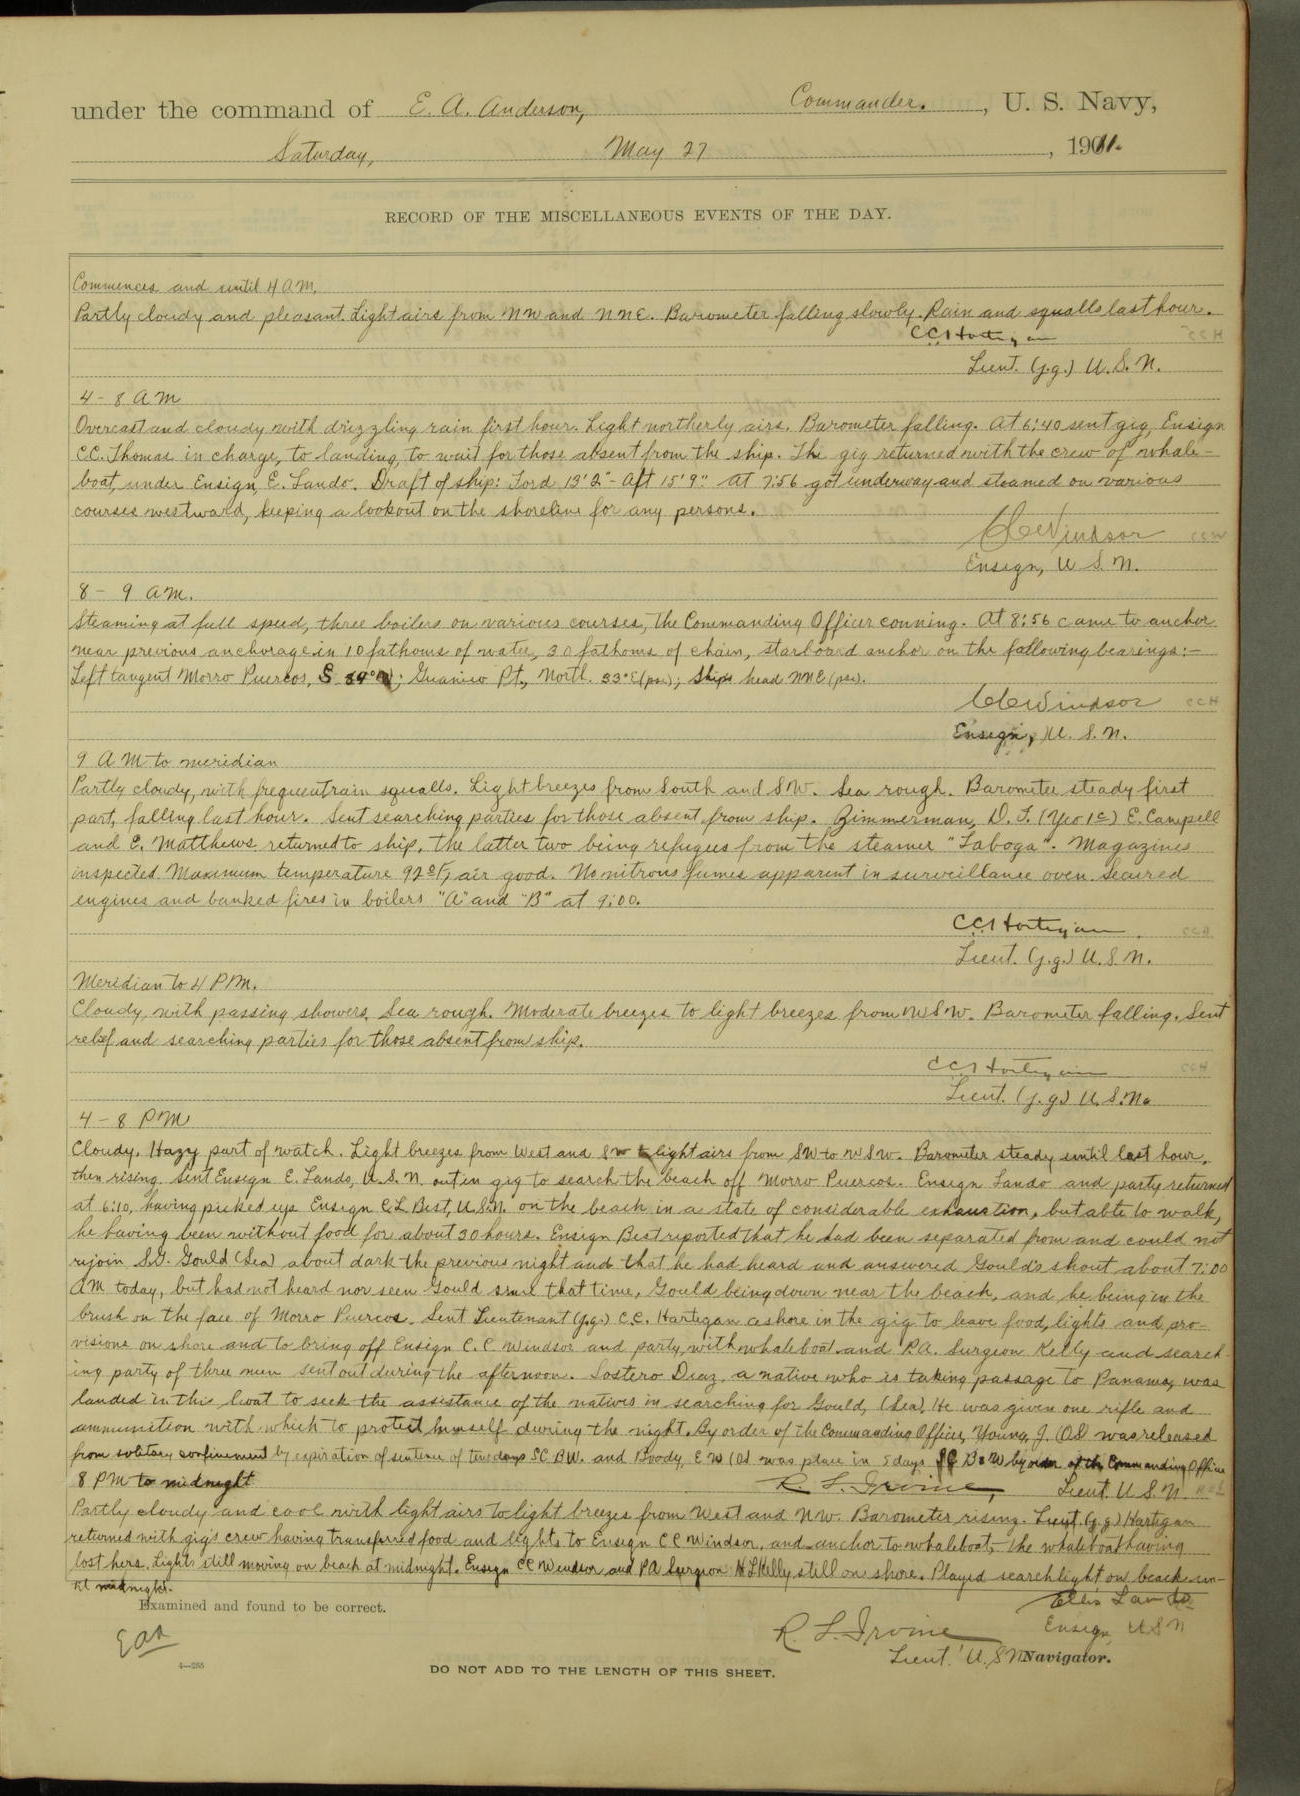 under the command of E. A. Anderson, Commander. , U. S. Navy,
Saturday, May 27 , 1911.
RECORD OF THE MISCELLANEOUS EVENTS OF THE DAY.
Commences and until 4 A.M.
Partly cloudy and pleasant. Light airs from NW and NNE. Barometer falling slowly. Rain and squalls last hour.
C.C. Hartigan
Lieut. (j.g.) U.S.N.
4 - 8 AM
Overcast and cloudy with drizzling rain first hour. Light northerly airs. Barometer falling. At 6:40 sent gig, Ensign
C.C. Thomas in charge, to landing, to wait for those absent from the ship. The gig returned with the crew of whale-
boat, under Ensign, E. Lando. Draft of ship: Ford 13'2" - Aft 15'9". At 7:56 got underway and steamed on various
courses westward, keeping a lookout on the shoreline for any persons.
CC Windsor
Ensign, U.S.N.
8 - 9 AM.
Steaming at full speed, three boilers on various courses, the Commanding Officer conning. At 8:56 came to anchor
near previous anchorage in 10 fathoms of water, 30 fathoms of chain, starboard anchor on the following bearings:-
Left tangent Morro Puercos, S. 89° W; Guanico Pt., North. 33° E (psc); Ships head NNE (psc).
CC Windsor
Ensign, U.S.N.
9 AM to meridian
Partly cloudy, with frequent rain squalls. Light breezes from South and SW. Sea rough. Barometer steady first
part, falling last hour. Sent searching parties for those absent from ship. Zimmerman, D. F. (Yeo 1c) E. Campell
and C. Matthews returned to ship, the latter two being refugees from the steamer "Taboga". Magazines
inspected. Maximum temperature 92°F, air good. No nitrous fumes apparent in surveillance oven. Secured
engines and banked fires in boilers "A" and "B" at 9:00.
C.C. Hartigan
Lieut. (j.g.) U.S.N.
Meridian to 4 P.M.
Cloudy, with passing showers. Sea rough. Moderate breezes to light breezes from WSW. Barometer falling. Sent
relief and searching parties for those absent from ship.
CC Hartigan
Lieut. (j.g.) U.S.N.
4 - 8 PM
Cloudy. Hazy part of watch. Light breezes from West and SW to light airs from SW to WSW. Barometer steady until last hour,
then rising. Sent Ensign E. Lando, U.S.N. out in gig to search the beach off Morro Puercos. Ensign Lando and party returned
at 6:10, having picked up Ensign C.L. Best, U.S.N. on the beach in a state of considerable exhaustion, but able to walk,
he having been without food for about 30 hours. Ensign Best reported that he had been separated from and could not
rejoin S.G. Gould (Sea) about dark the previous night and that he had heard and answered Gould's shout about 7:00
AM today, but had not heard nor seen Gould since that time, Gould being down near the beach, and he being in the
brush on the face of Morro Puercos. Sent Lieutenant (j.g.) C.C. Hartigan ashore in the gig to leave food, lights and pro-
visions on shore and to bring off Ensign C.C. Windsor and party, with whaleboat and P.A. Surgeon Kelly and search-
ing party of three men sent out during the afternoon. Sostero Diaz, a native who is taking passage to Panama, was
landed in this boat to seek the assistance of the natives in searching for Gould, (Sea). He was given one rifle and
ammunition with which to protect himself during the night. By order of the Commanding Officer, Young, J. (OS) was released
from solitary confinement by expiration of sentence of two days SC BW. and Boody, E W (OS) was place in 5 days SC B & W by order of the Commanding Officer
8 PM to midnight R. L. Irvine, Lieut. U.S.N.
Partly cloudy and cool with light airs to light breezes from West and NW. Barometer rising. Lieut. (j.g.) Hartigan
returned with gig's crew having transferred food and lights to Ensign CC Windsor, and anchor to whaleboat, the whaleboat having
lost hers. Lights still moving on beach at midnight. Ensign CC Windsor and PA Surgeon H L Kelly still on shore. Played searchlight on beach un-
til midnight.
Ellis Lando
Ensign USN
Examined and found to be correct.
EAA
R. L. Irvine
Lieut. U.S.N. Navigator.
4—255
DO NOT ADD TO THE LENGTH OF THIS SHEET.